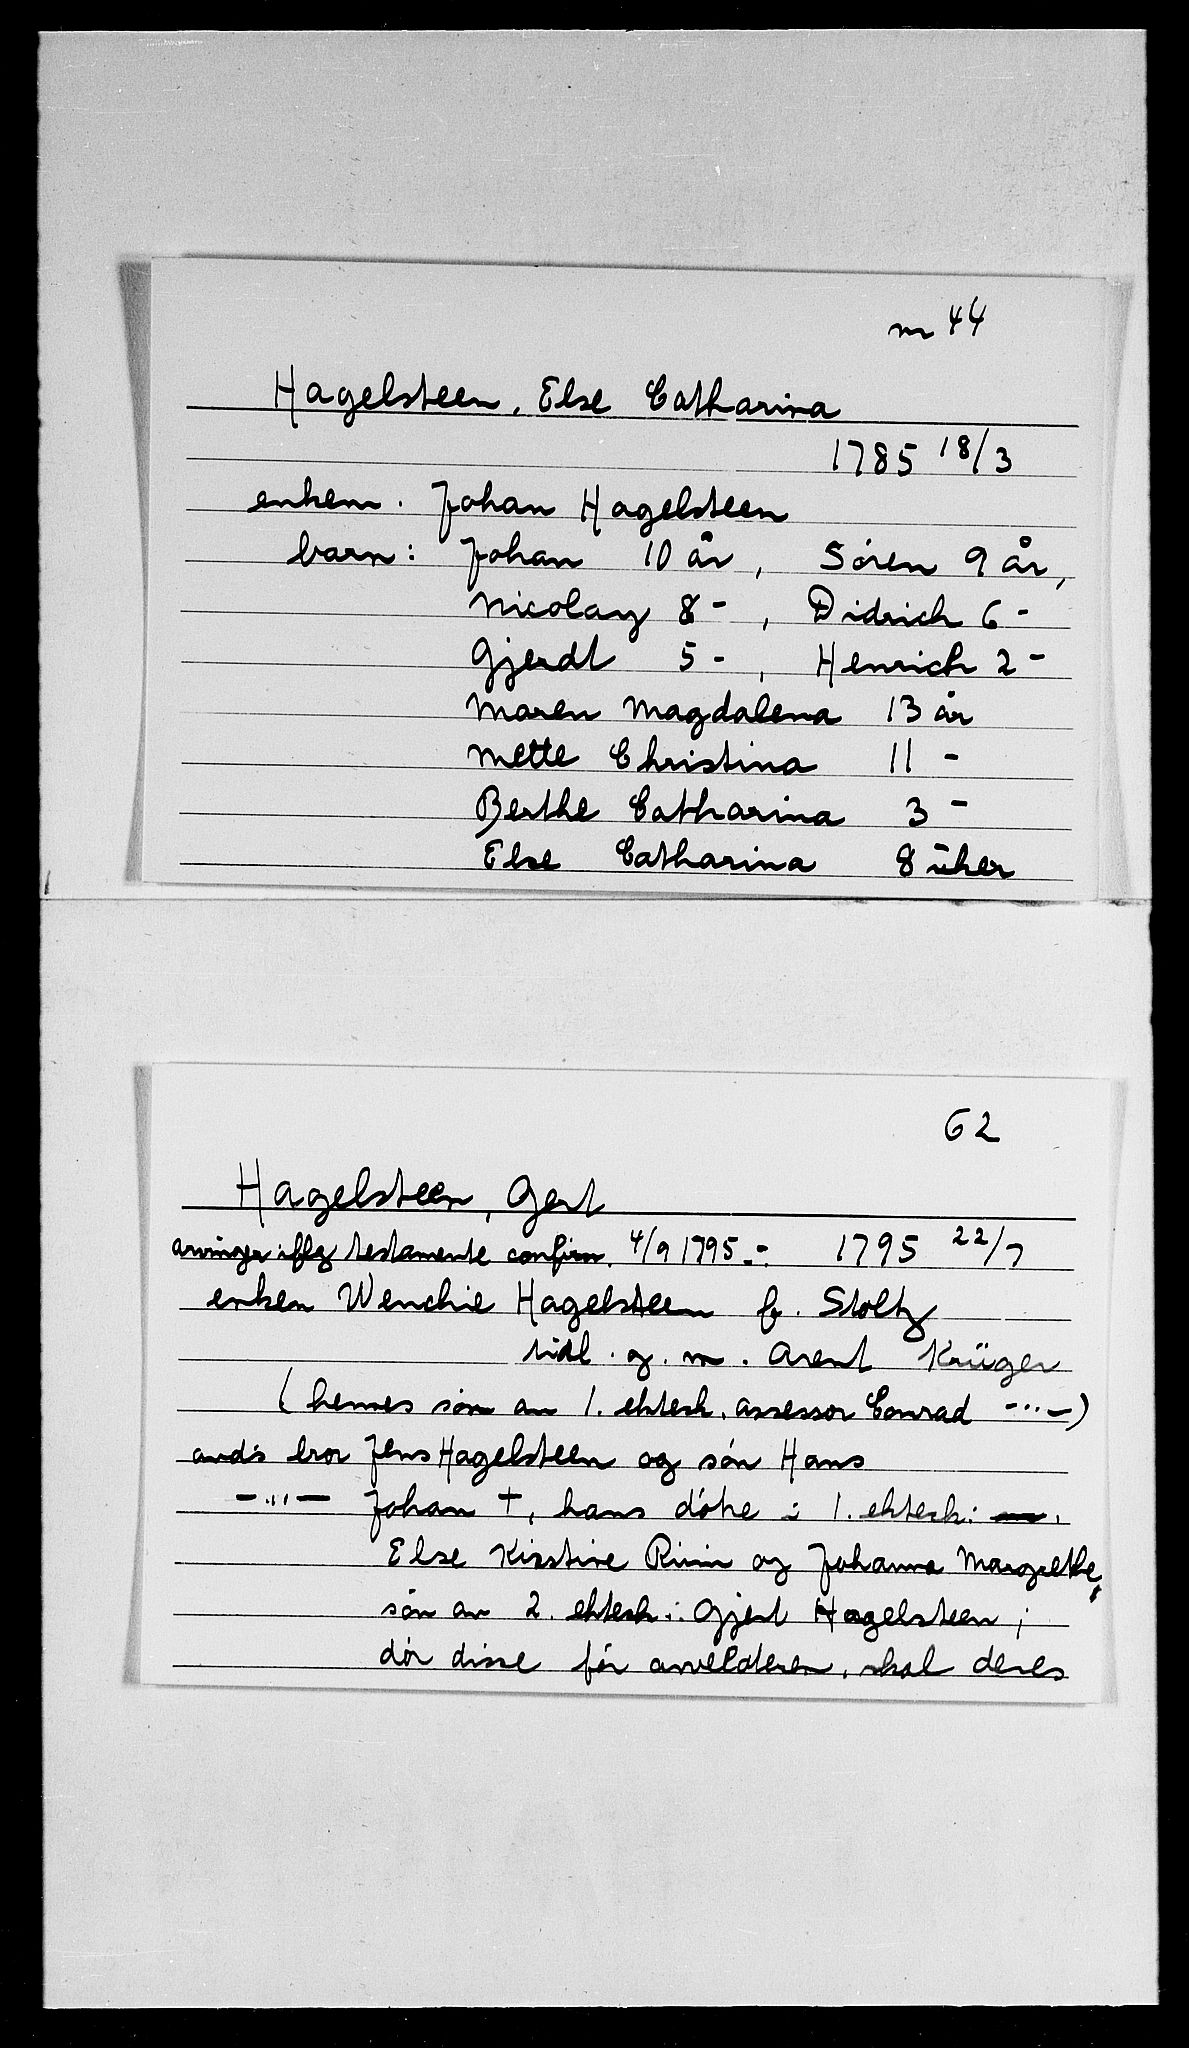 nr 44
Hagelsteen, Else Catharina
1785 18/3
enkem. Johan Hagelsteen
barn: Johan 10 år, Sören 9 år,
Nicolay 8 -, Didrich 6 -
Gjerdt 5 -, Henrich 2 -
Maren Magdalena 13 år
Mette Christina 11 -
Berthe Catharina 3 -
Else Catharina 8 uker
62
Hagelsteen, Gert
arvinger iflg testamente confirm. 4/9 1795 -: 1795 22/7
enken Wenchie Hagelsteen f. Stoltz
tidl. g. m. Arent Krüger
(hennes sön av 1. ektesk. assessor Conrad -"-)
avd's bror Jens Hagelsteen og sön Hans
-"- Johan †, hans dötre i 1. ektesk:
Else Kisstine Riisin og Johanna Margrethe,
sön av 2. ektesk: Gjert Hagelsteen;
dör disse för arveldteren, skal deres